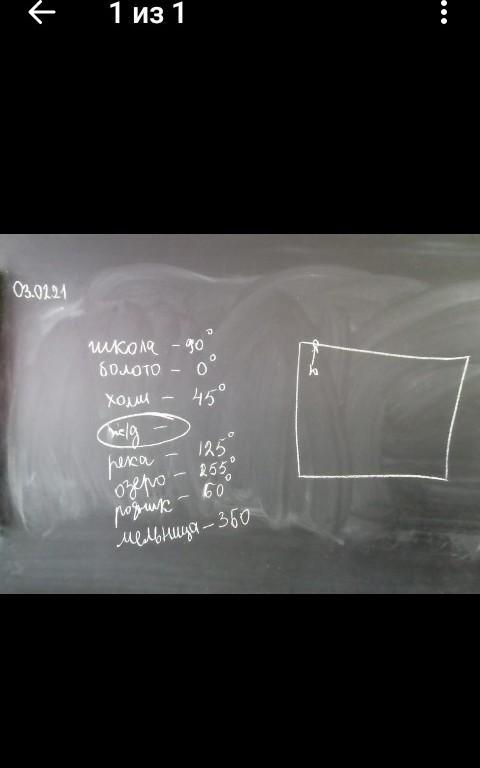 1 из 1
03.0221
школа - 90°
болото - 0°
холм - 45°
ж/д -
река - 125°
озеро - 255°
родник - 60°
мельница - 360